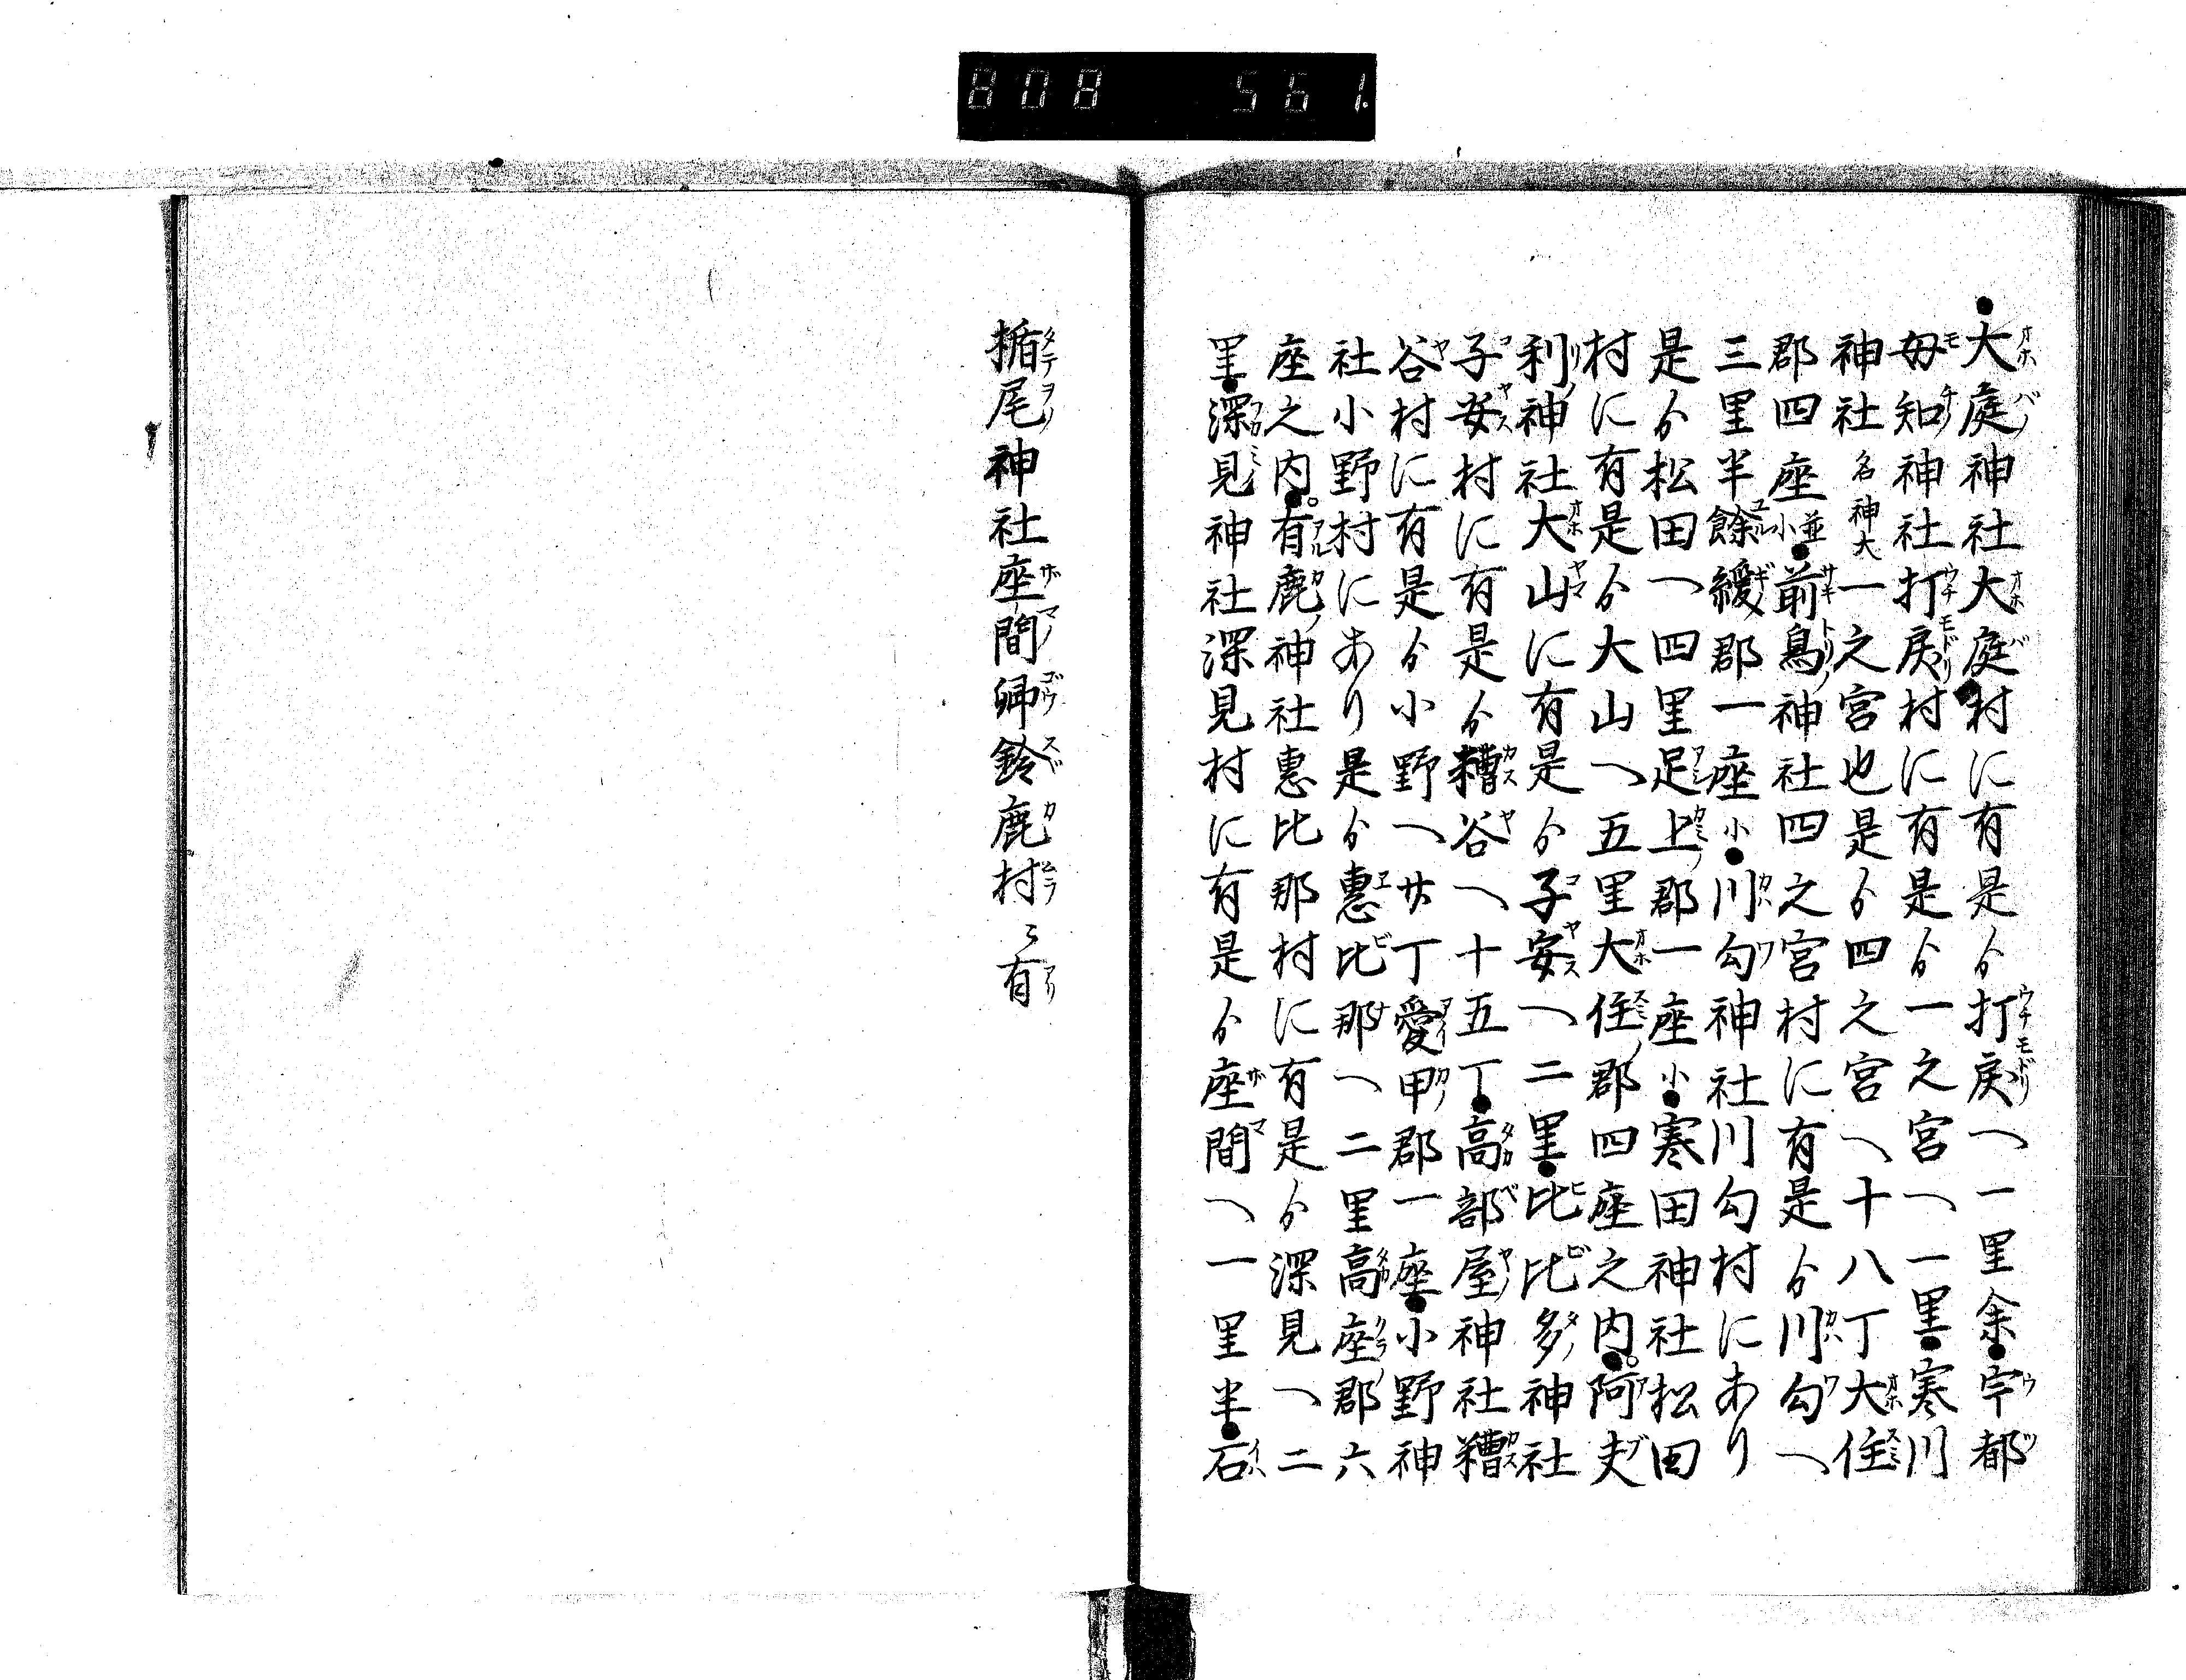 808 561.
●大庭神社大庭村に有是ゟ打戻へ一里余●宇都
母知神社打戻村に有是ゟ一之宮へ一里●寒川
神社名神大一之宮也是ゟ四之宮へ十八丁大住
郡四座並小●前鳥神社四之宮村に有是ゟ川勾へ
三里半餘綾郡一座小●川勾神社川勾村にあり
是ゟ松田へ四里足上郡一座小●寒田神社松田
村に有是ゟ大山へ五里大住郡四座之内●阿夫
利神社大山に有是ゟ子安へ二里●比比多神社
子安村に有是ゟ糟谷へ十五丁●高部屋神社糟
谷村に有是ゟ小野へ廿丁愛甲郡一座●小野神
社小野村にあり是ゟ惠比那へ二里高座郡六
座之内●有鹿神社惠比那村に有是ゟ深見へ二
里●深見神社深見村に有是ゟ座間へ一里半●石
楯尾神社座間郷鈴鹿村ニ有